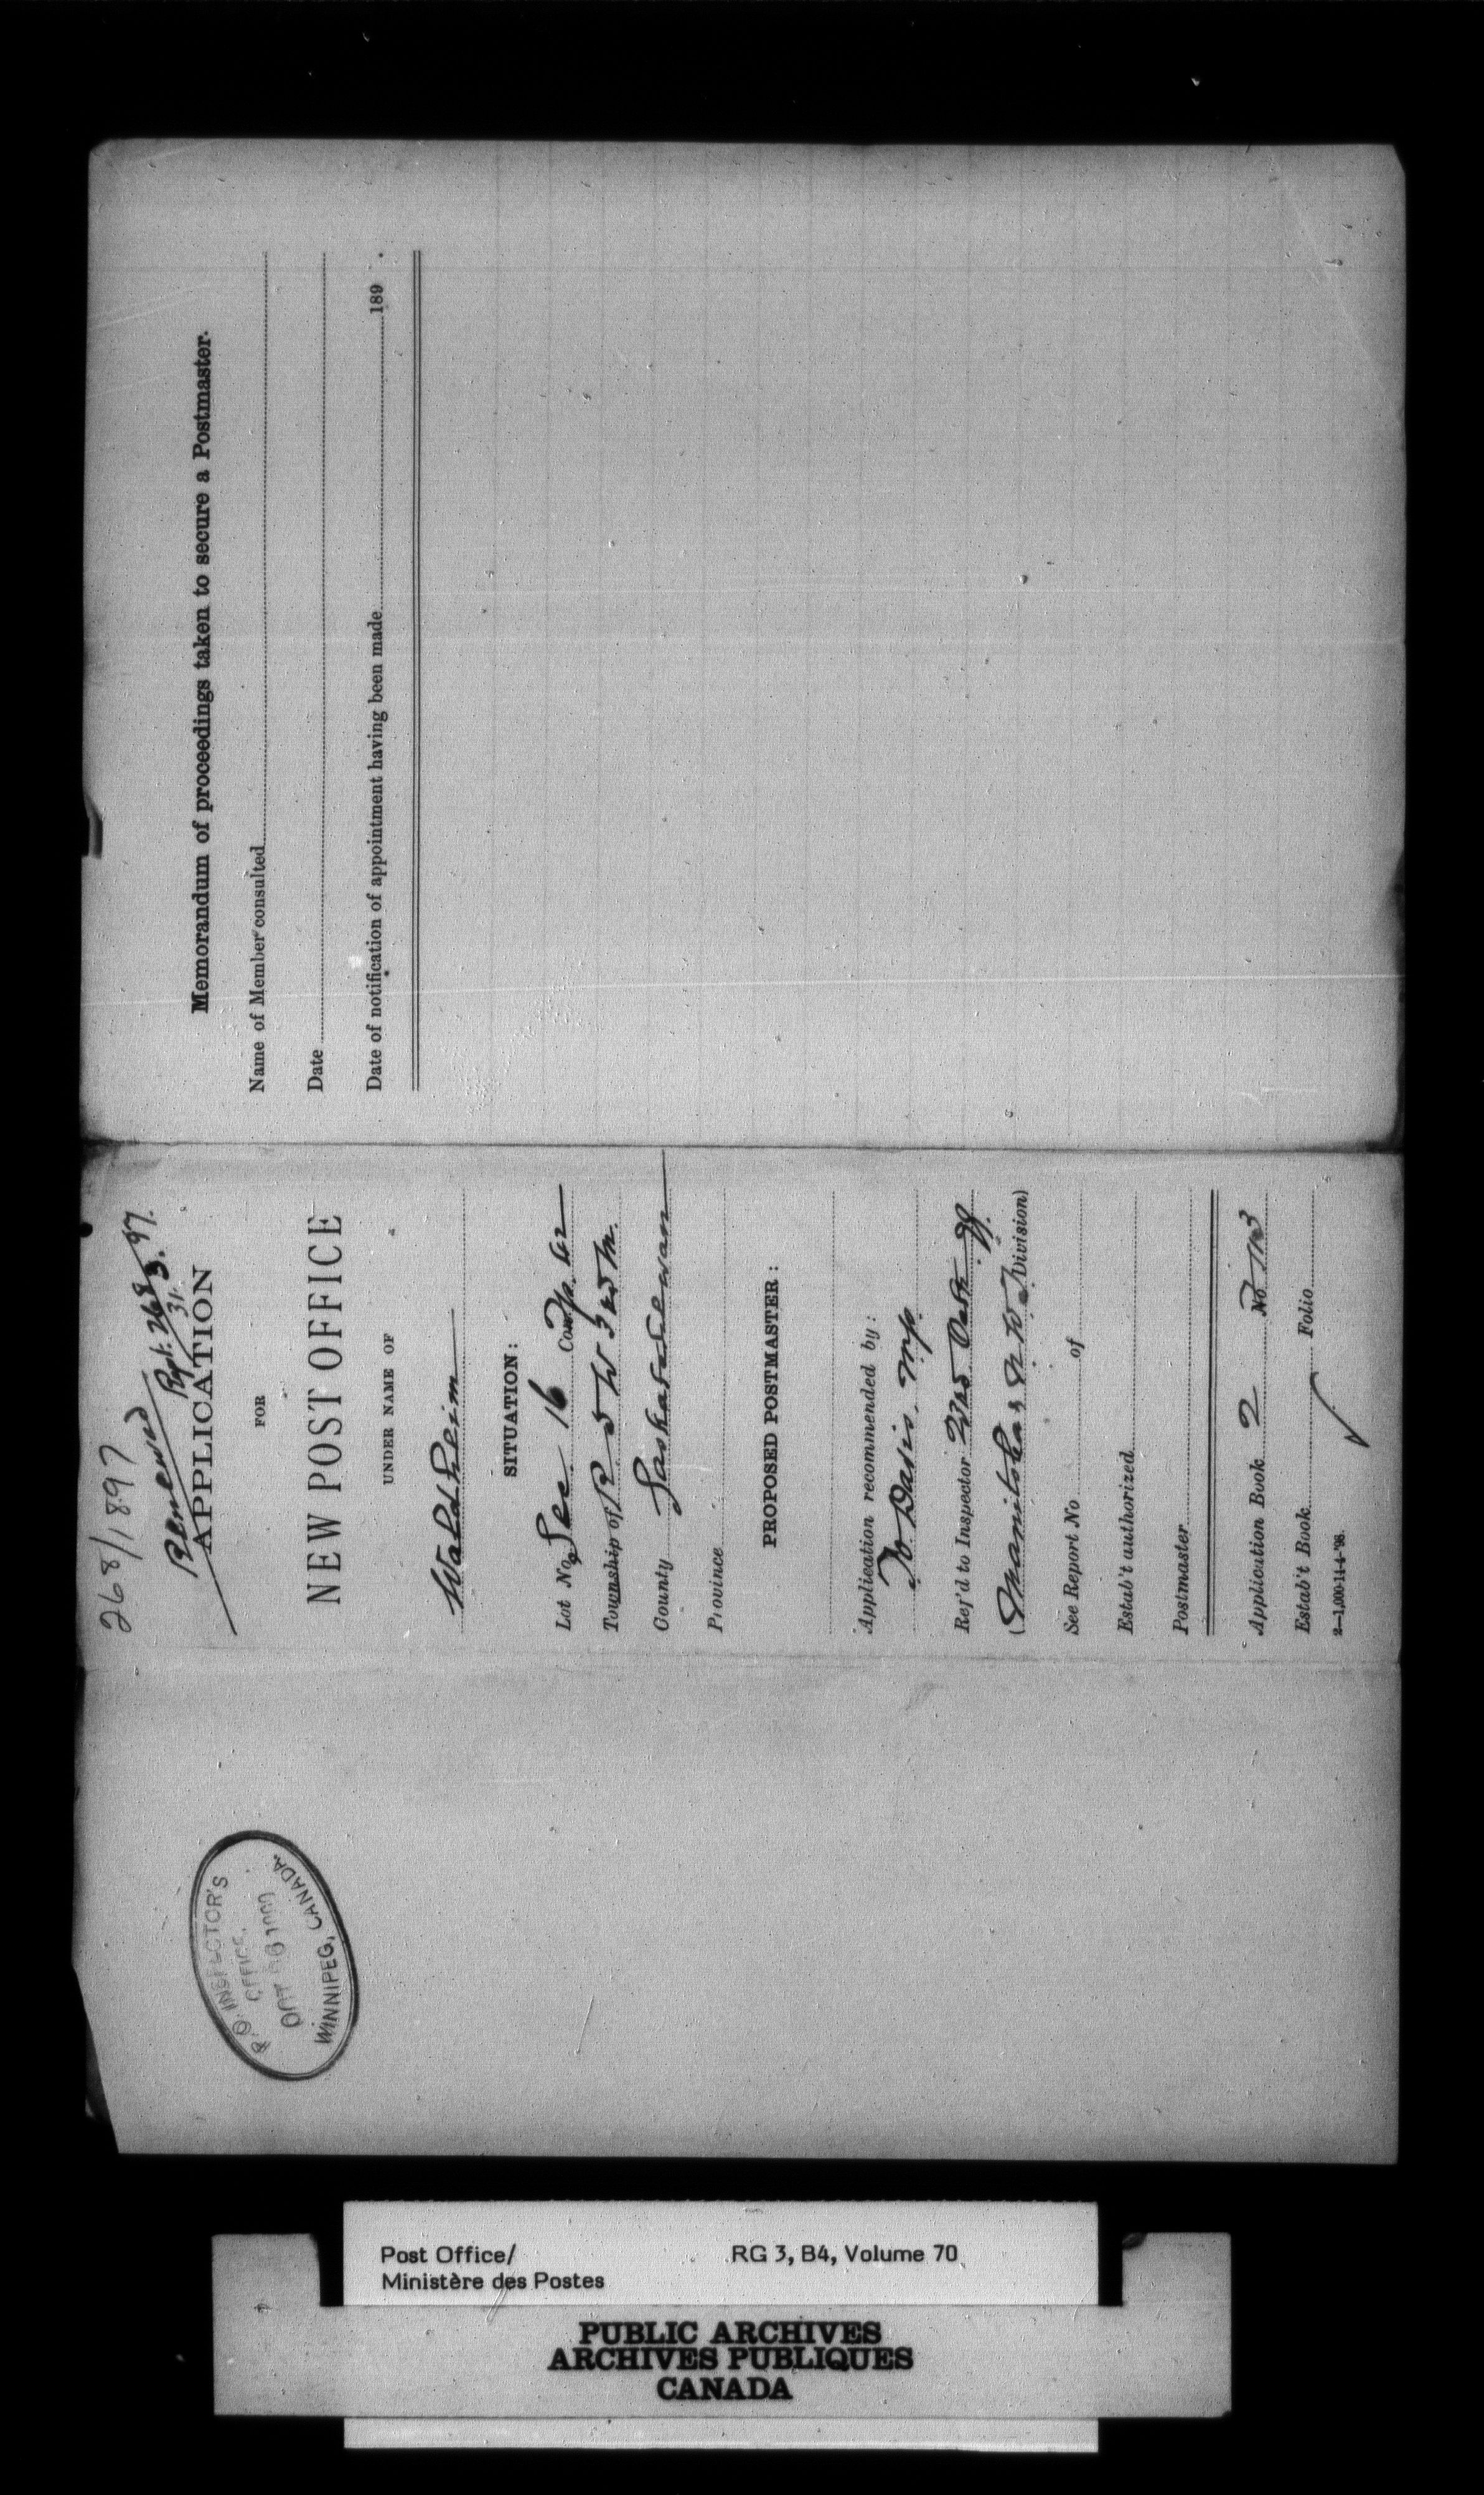 268/1897
Renewed Rpt. 268
31.3.97.
APPLICATION
FOR
NEW POST OFFICE
UNDER NAME OF
Waldheim
SITUATION:
Lot No. Sec 16 Con. Tp. 42
Township of R 5 W 3rd M.
County Saskatchewan
Province
PROPOSED POSTMASTER:
Application recommended by:
T O Davis. M.P.
Ref'd to Inspector
(Manitoba & N W T Division)
See Report No of
Estab't authorized
Postmaster
Application Book 2 No.
Estab't Book Folio
2—1,000-11-4-'98.
Memorandum of proceedings taken to secure a Postmaster.
Name of Member consulted
Date
Date of notification of appointment having been made 189 .
P. O. INSPECTOR'S
OFFICE.
WINNIPEG, CANADA.
Post Office/
Ministère des Postes
RG 3, B4, Volume 70
PUBLIC ARCHIVES
ARCHIVES PUBLIQUES
CANADA